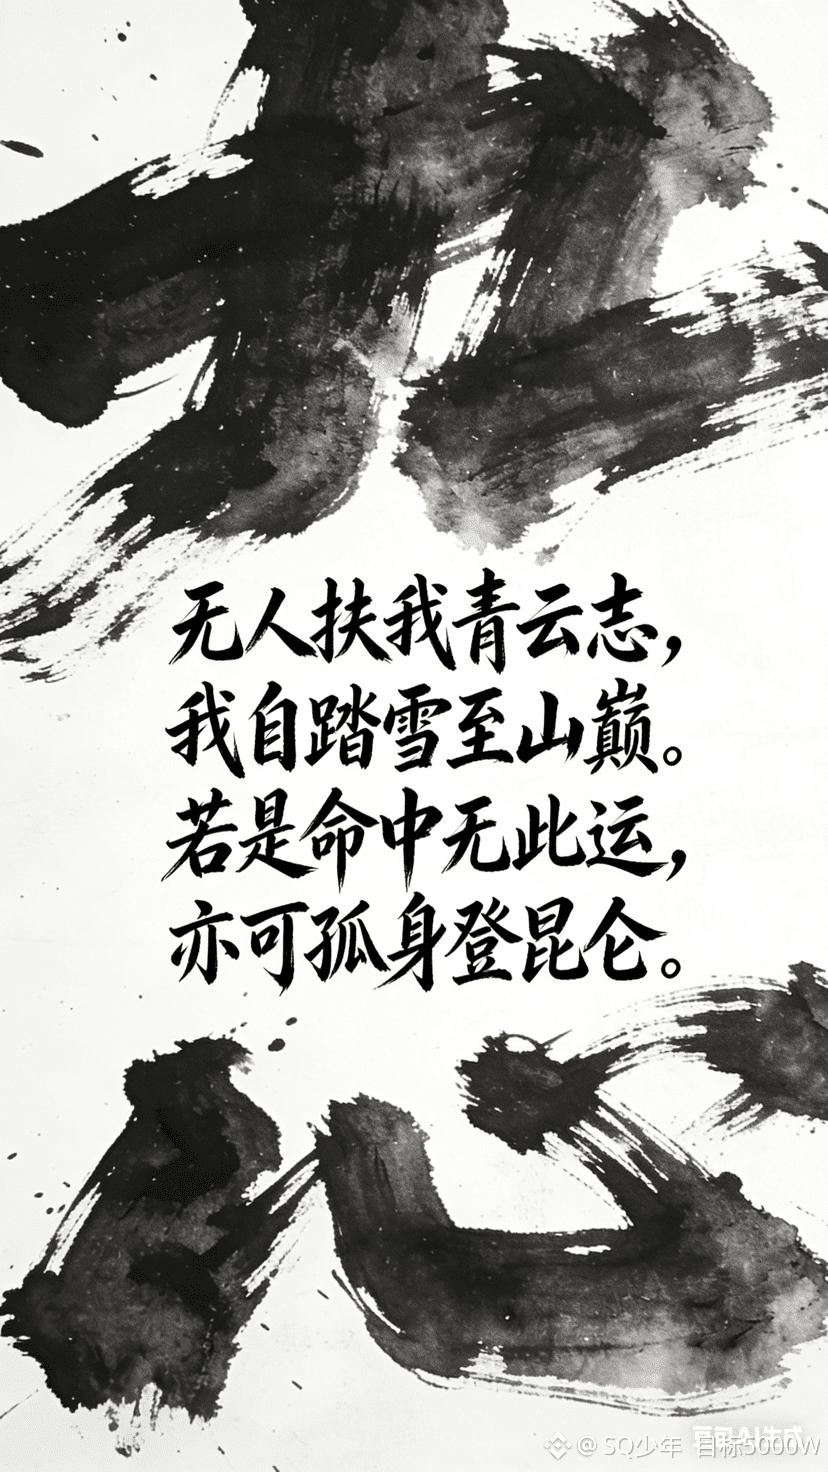 无人扶我青云志，
我自踏雪至山巅。
若是命中无此运，
亦可孤身登昆仑。
豆包AI生成
@SQ少年 目标5000W